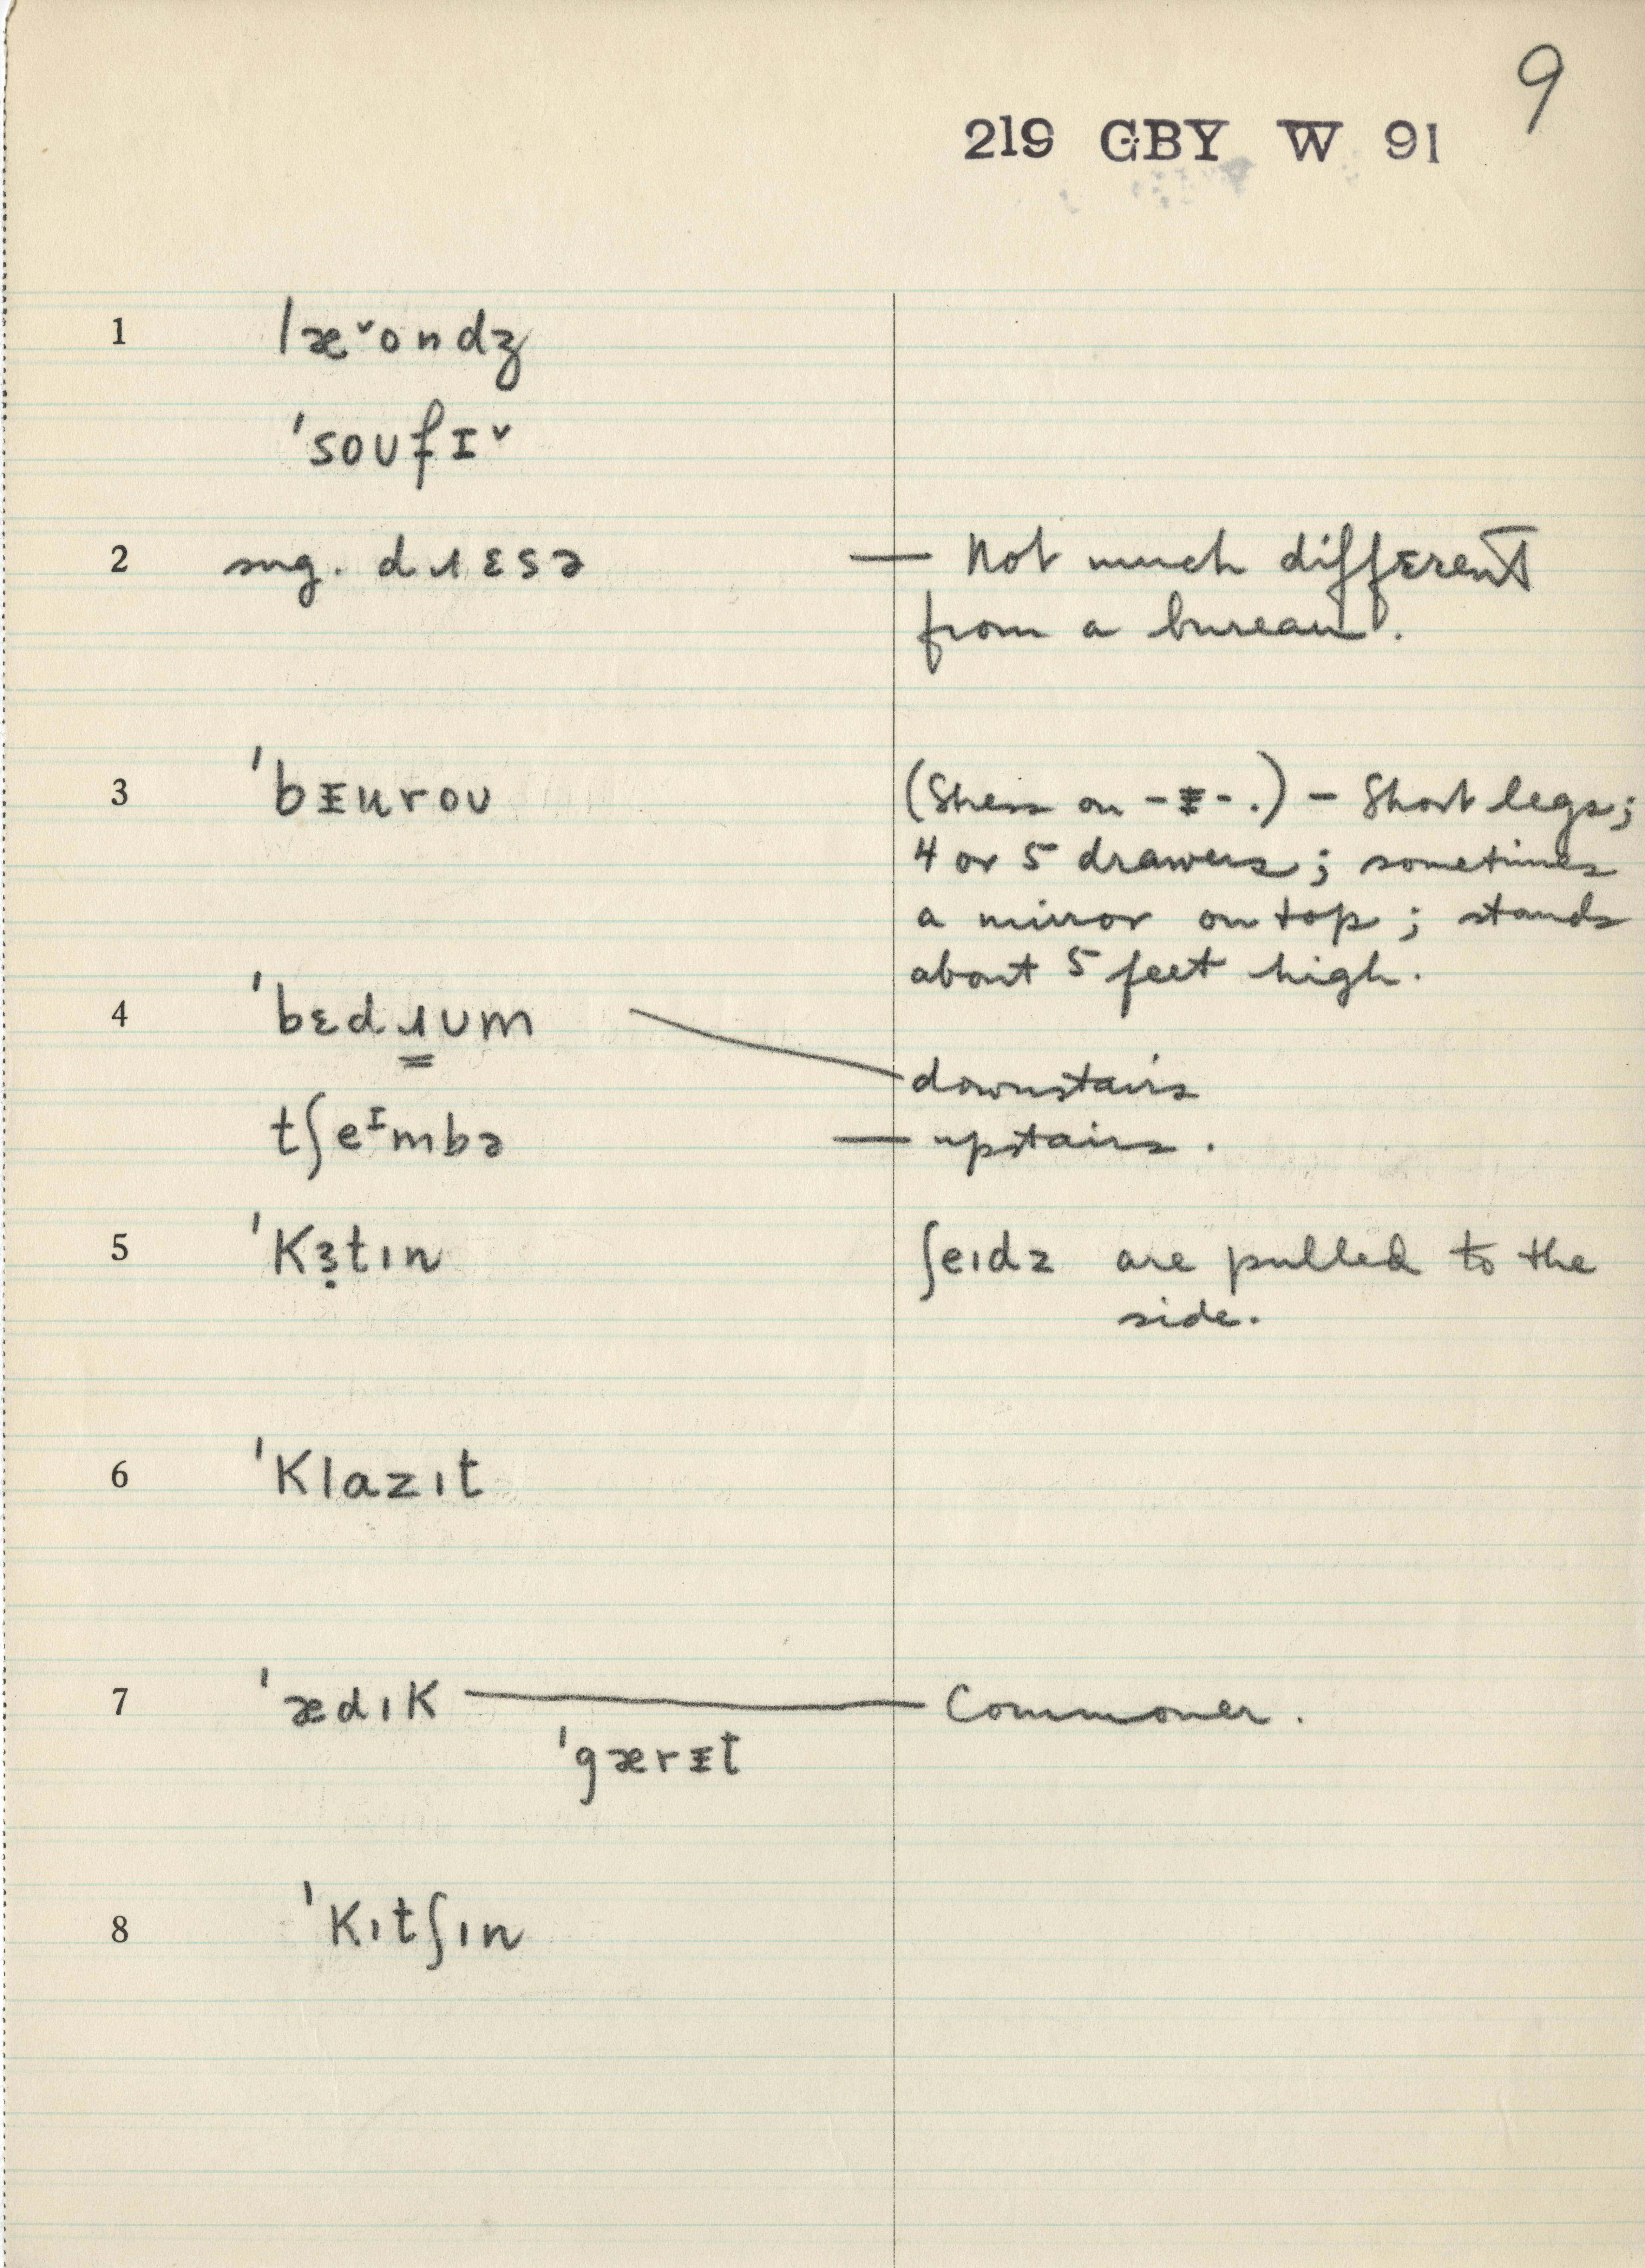 9
219 GBY W 91
1 læ˅ondʒ
'soʊfɪ˅
2 sug. dɹɛsə — Not much different
from a bureau.
3 'bᵻuroʊ (Stress on -ᵻ-.) – Short legs;
4 or 5 drawers; sometimes
a mirror on top; stands
about 5 feet high.
4 'bɛdɹʊm
downstairs
tʃeᶦmbə — upstairs.
5 'kɜ̣tɪn ʃeɪdz are pulled to the
side.
6 'klazɪt
7 'ædɪk — Commoner.
'gærᵻt
8 'kɪtʃɪn